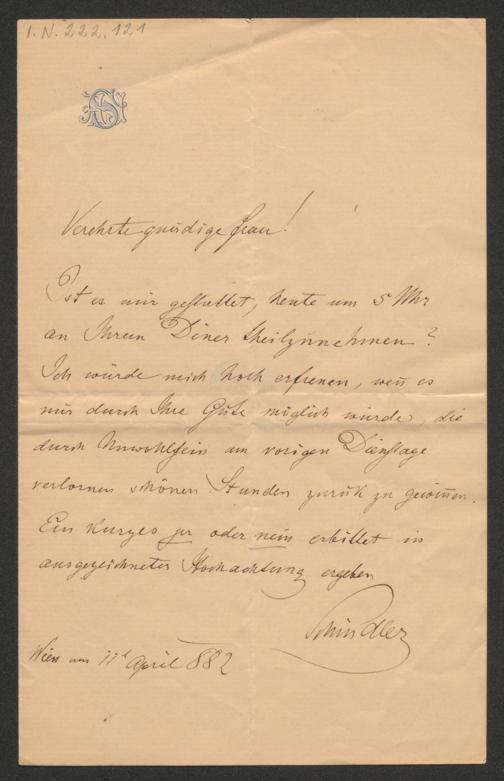 I.N. 222.121
Verehrte gnädige Frau!
Ist es mir gestattet, heute um 5 Uhr
an Ihrem Diner theilzunehmen?
Ich würde mich hoch erfreuen, weñ es
mir durch Ihre Güte möglich würde, die
durch Unwohlsein am vorigen Dienstage
verlornen schönen Stunden zurük zu gewiñen.
Ein kurzes ja oder nein erbittet in
ausgezeichneter Hochachtung ergeben
Schindler
Wien am 11t April 882